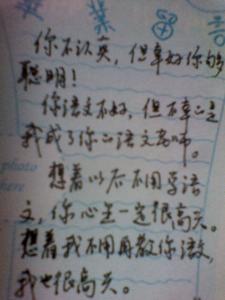 你不认英，但幸好你够
聪明！
你语文不好，但不幸的是
我成了你的语文老师。
想着以后不用学语
文，你心里一定很高兴。
想着我不用再教你语文，
我也很高兴。
photo
here